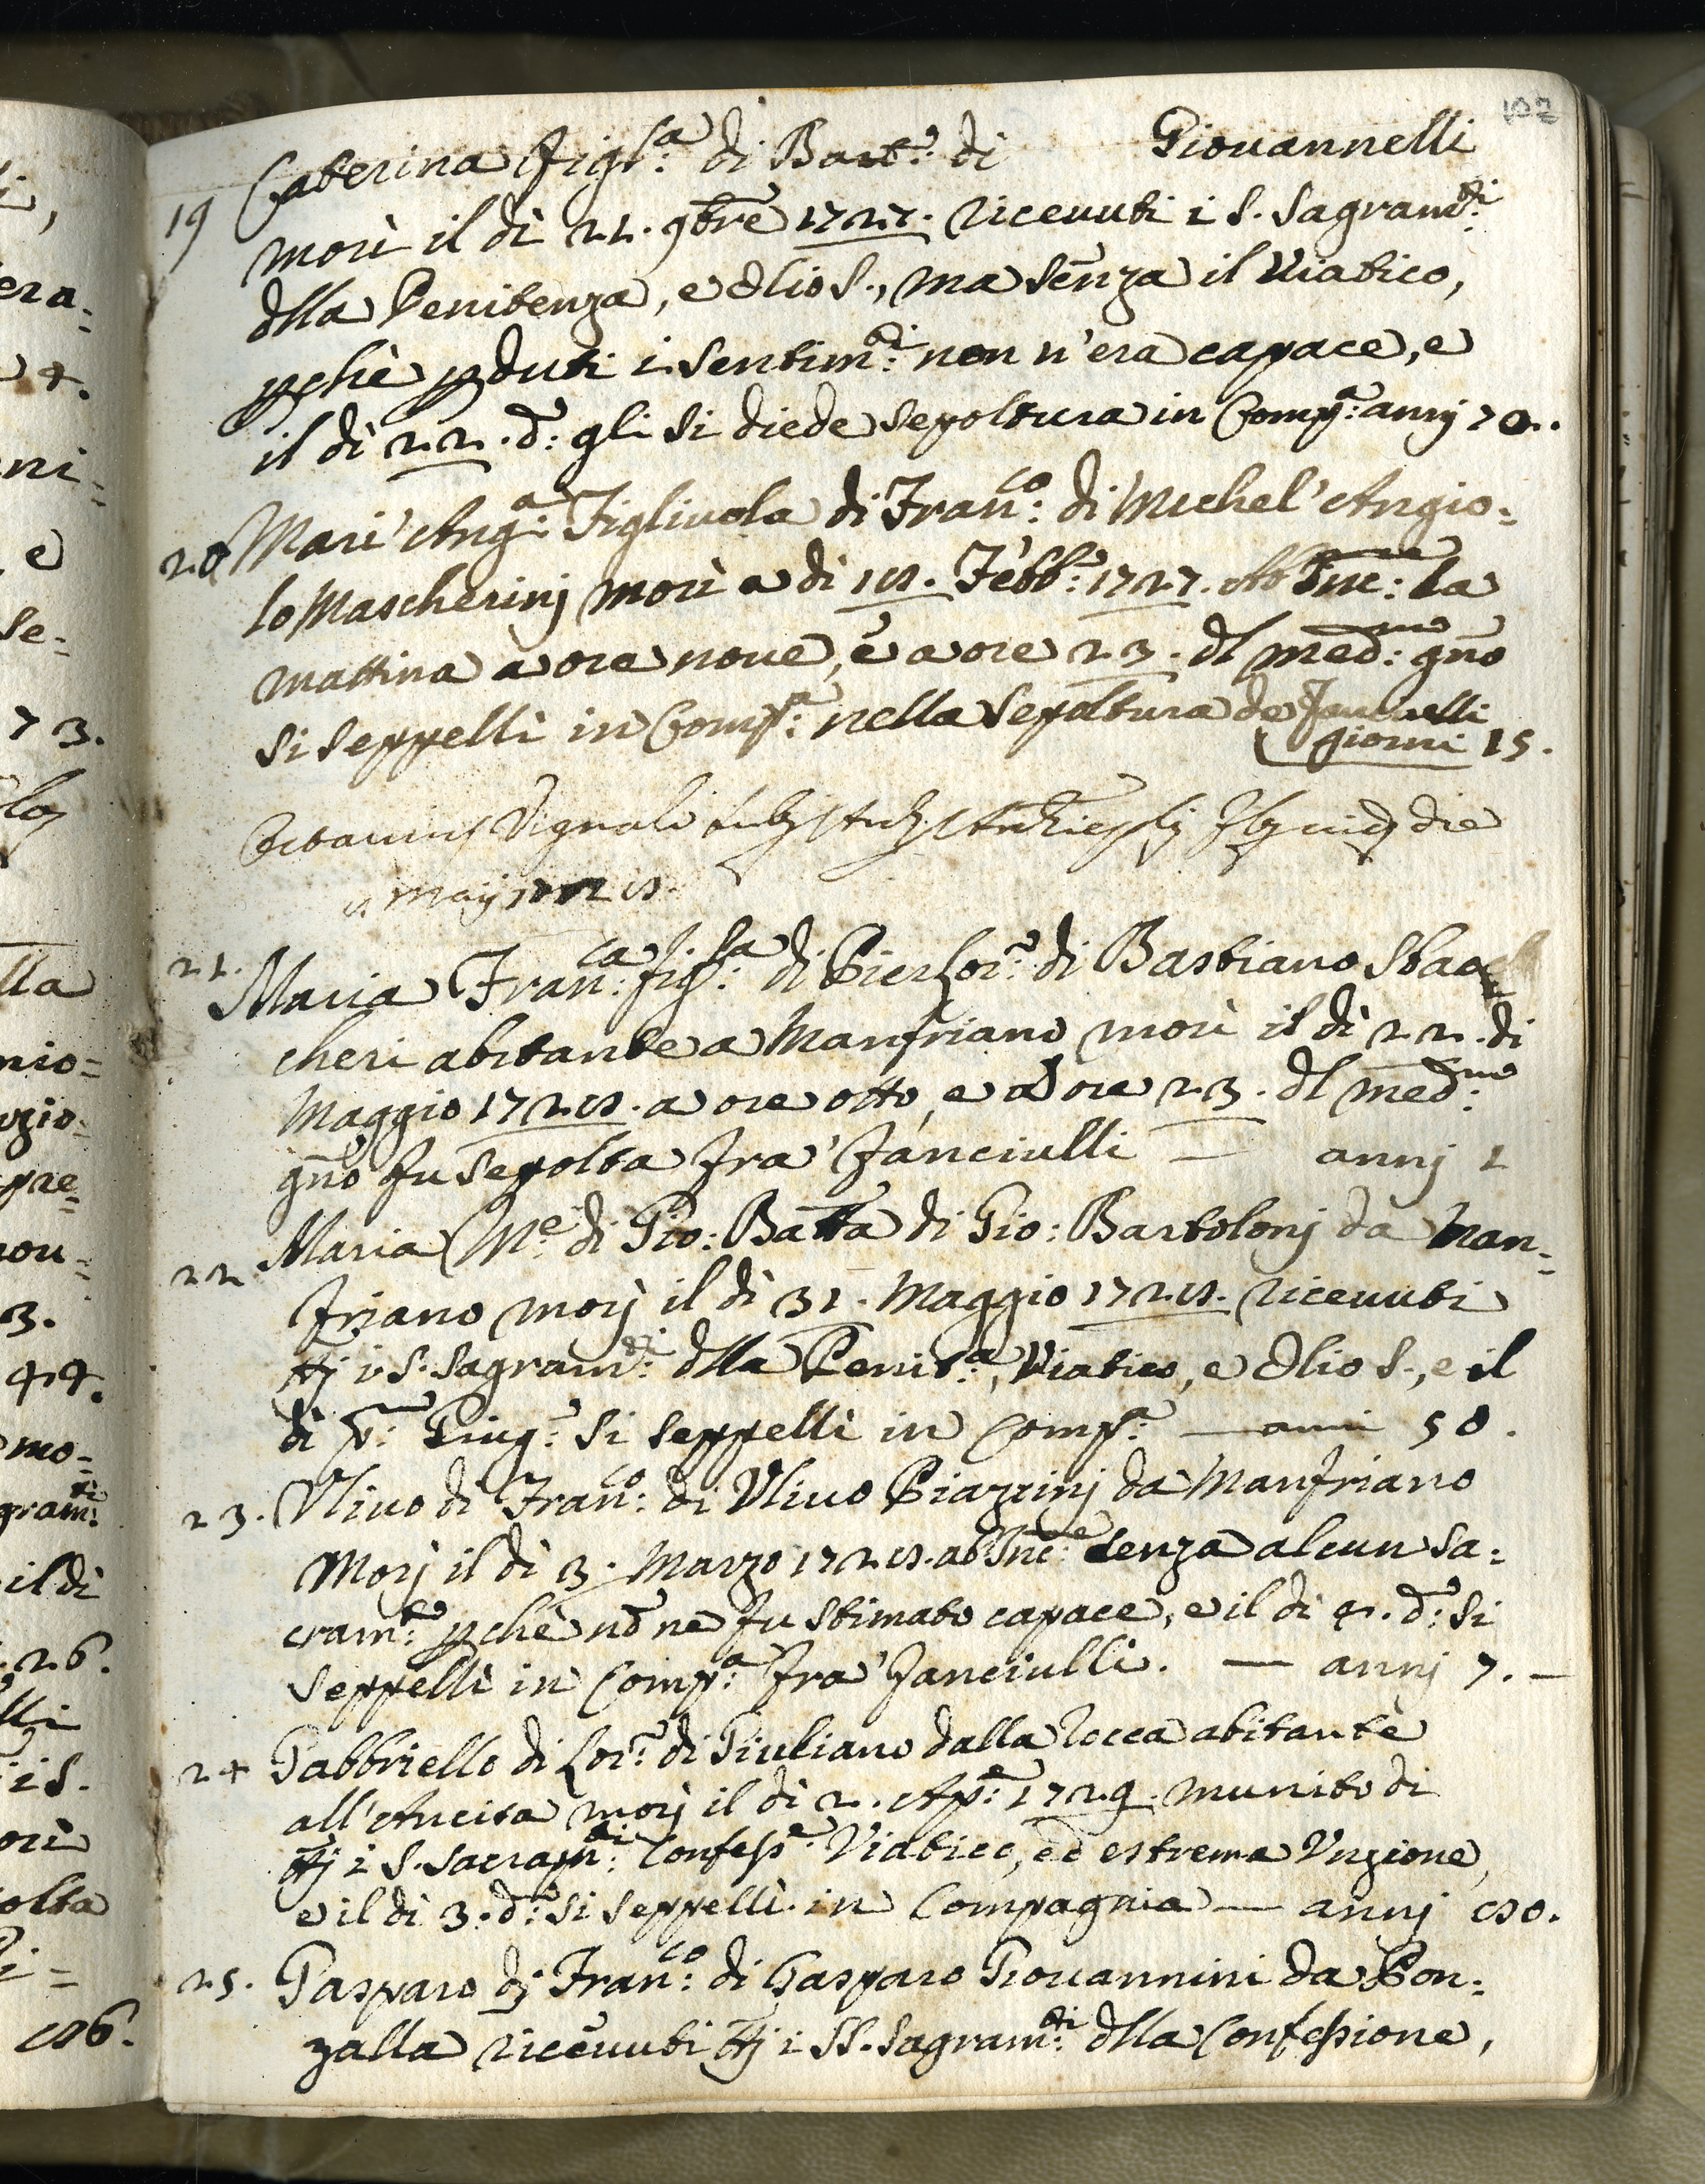 102
Caterina figl:a di Bart:o di Giouannelli
19 morì il dì 21. 9bre 1727. riceuuti i S. Sagram:ti
dlla Penitenza, e Olio S., ma senza il Uiatico,
pchè pduti i sentim:ti non n'era capace, e
il dì 22. d:o gli si diede sepoltura in Comp:a annj 70.
20 Mari' Ang:a Figliuola di Fran:co di Michel' Angio=
lo Mascherinj morì a di 18. Febb:o 1727. Ab Inc:ne la
mattina a ore noue, e a ore 23. dl med:mo gno
si seppellì in Comp:a nella sepoltura de Fanciulli
giorni 15.
Octauius Vignali die
Maij
21. Maria Fran:ca fig:la di Pier Lor:o di Bastiano Sbac
cheri abitante a Manfriano morì il dì 22. di
Maggio 1728. a ore otto, e a ore 23. dl med:mo
gno fu sepolta fra' fanciulli — annj 1
22 Maria M:e di Gio: Batta di Gio: Bartolonj da Man=
friano morj il dì 31. Maggio 1728. riceuuti
ttj i S. sagram:ti dlla Penit:a, Viatico, e Olio S., e il
di p:o Giug:o si seppellì in Comp:a — anni 50.
23. Vliuo di Fran:co di Vliuo Piazzinj da Manfriano
Morj il dì 3. Marzo 1728. ab Inc:e senza alcun sa=
cram:to pchè nō ne fu stimato capace, e il di 4. d:o si
seppellì in Comp:a fra' fanciulli. — annj 7. —
24 Gabbriello di Lor:o di Giuliano dalla Rocca abitante
all'Ancisa morj il dì 2. Ap:e 1729. munito di
ttj i S. sacram:ti Confess:e Viatico, ed estrema Vnzione,
e il dì 3. d:o si seppellì in Compagnia — annj 80.
25. Gasparo dj Fran:co di Gasparo Giouannini da Bon=
zalla riceuuti ttj i SS. Sagram:ti dlla Confessione,